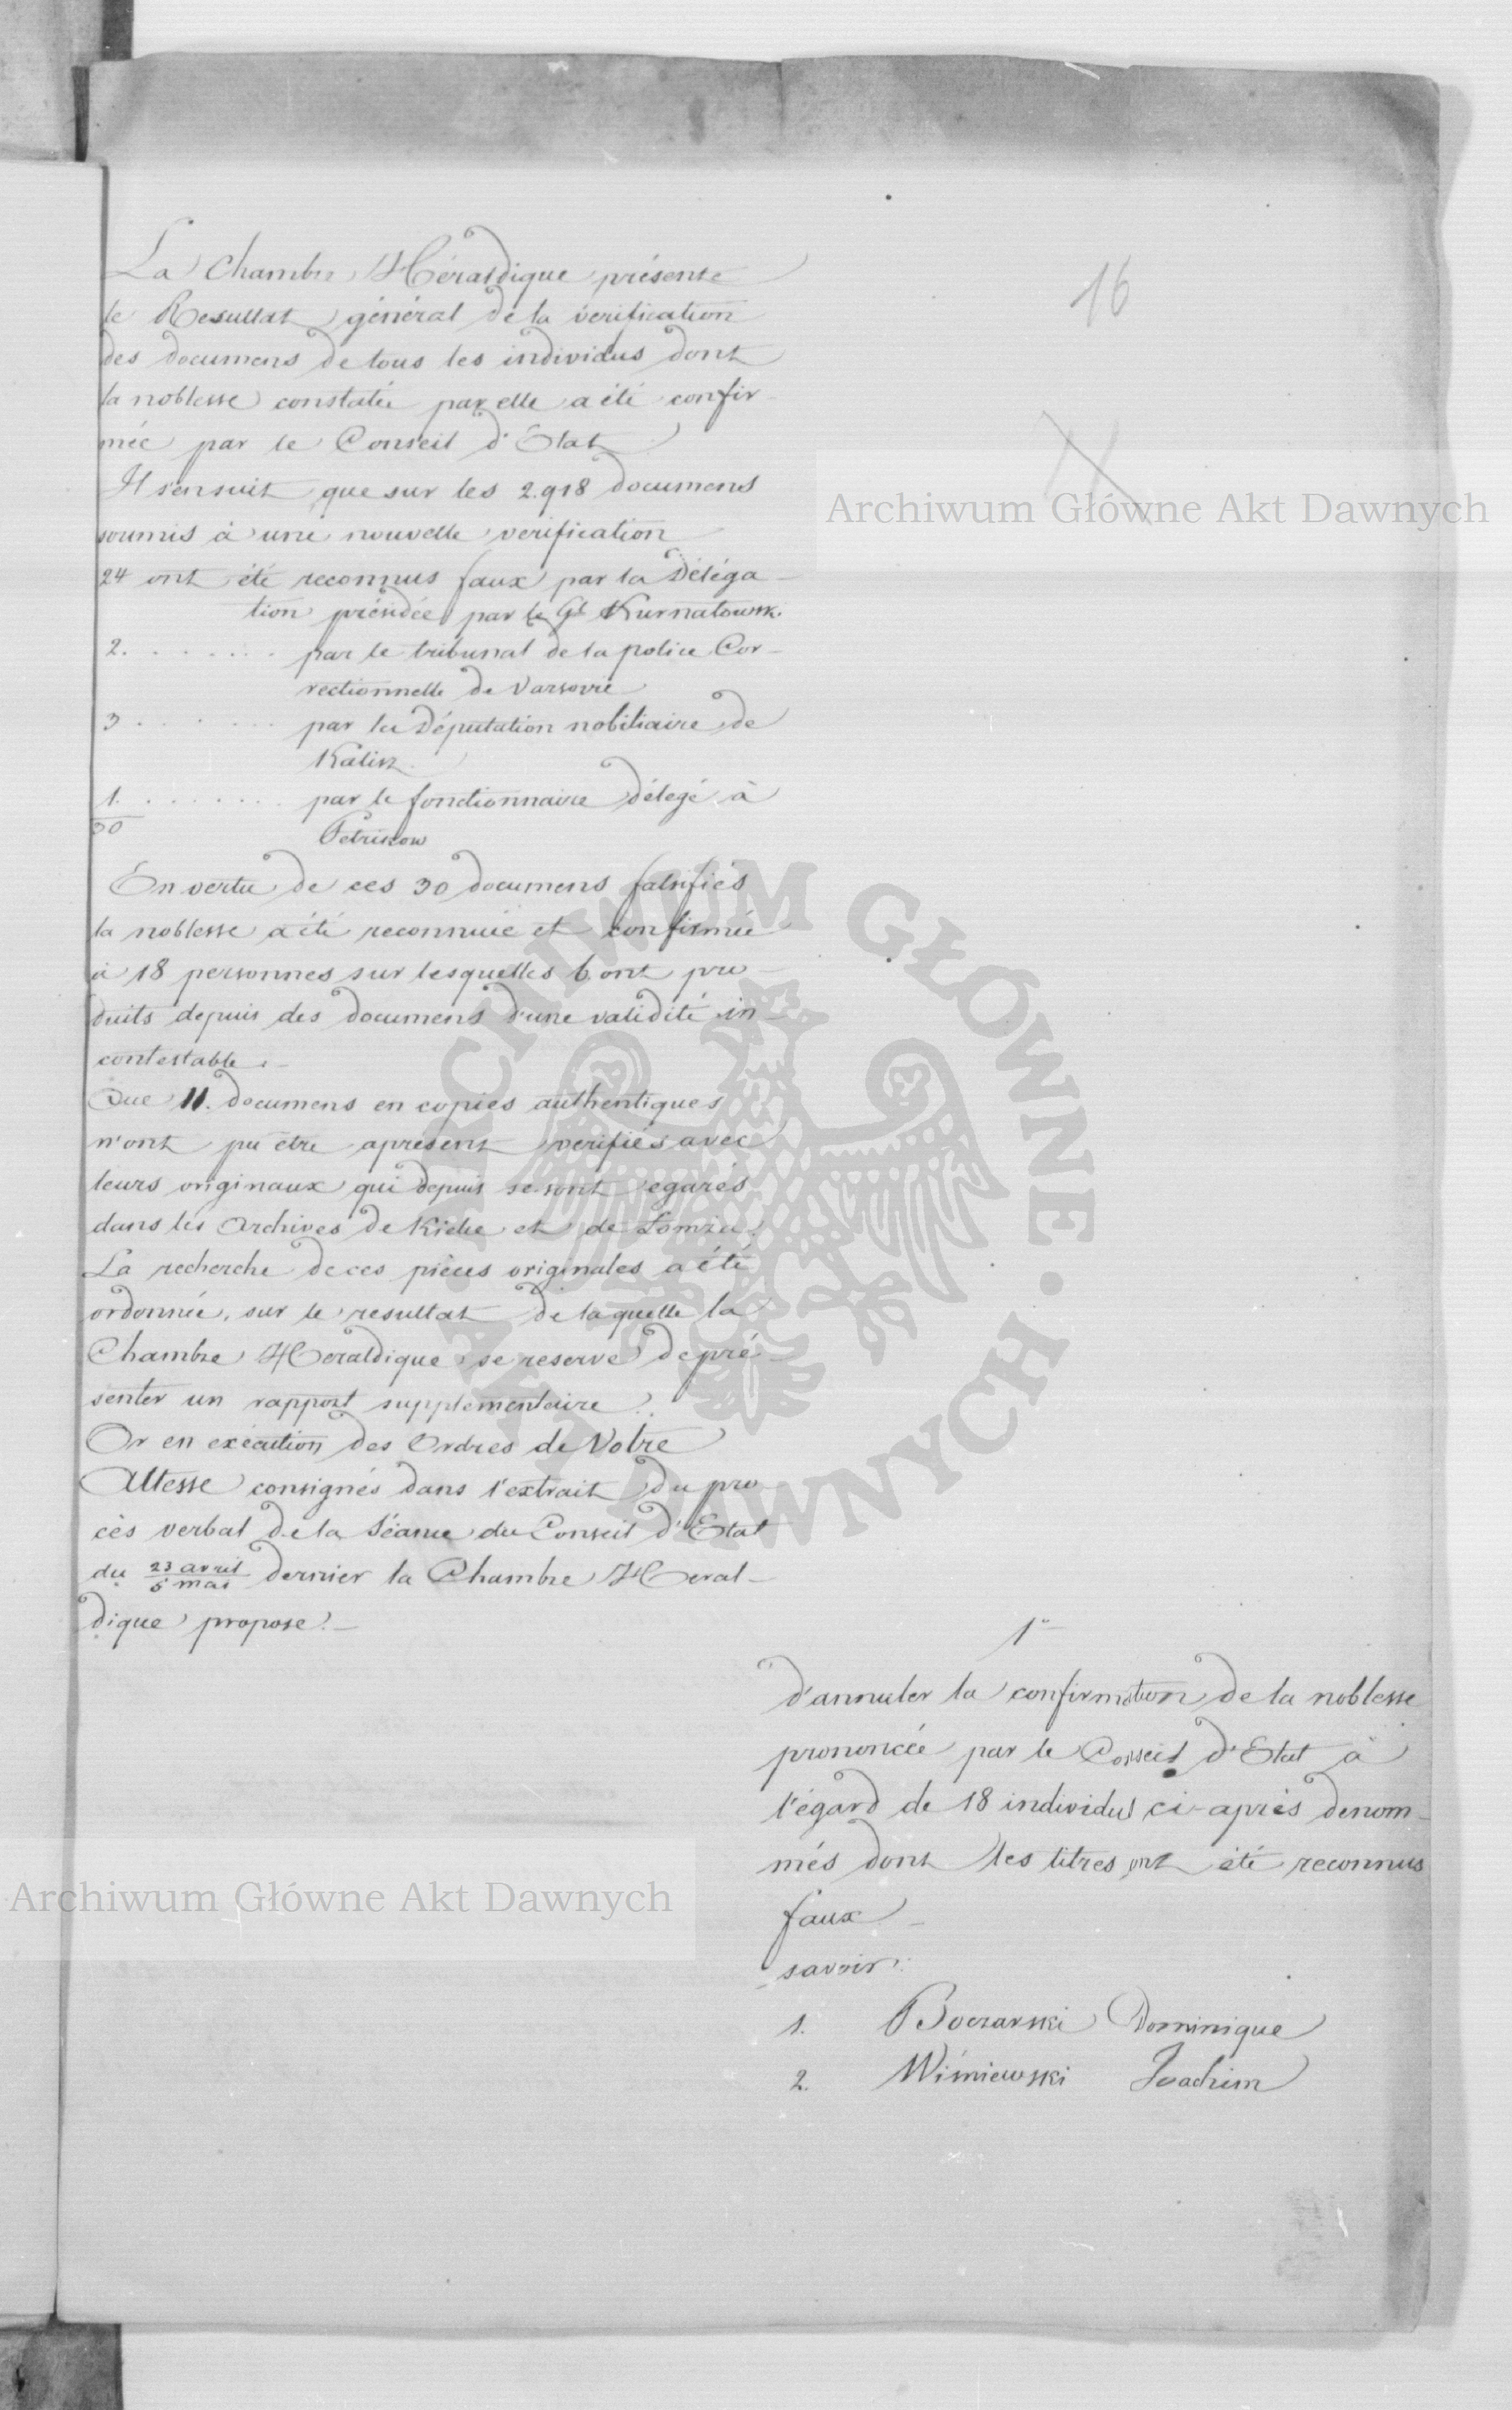 16
La Chambre Héraldique présente
le Resultat général de la verification
des documens de tous les individus dont
la noblesse constatée par elle a été confir-
mée par le Conseil d'Etat
Il s'ensuit que sur les 2.918 documens
soumis à une nouvelle verification
24 ont été reconnus faux par la Déléga-
tion présidée par le Gl Kurnatowski
2. . . . . . . . par le tribunal de la police Cor-
rectionnelle de Varsovie
3 . . . . . . . par la Députation nobiliaire de
Kalisz.
1. . . . . . . . par le fonctionnaire délegé à
30
Petrikow
En vertu de ces 30 documens falsifiés
la noblesse a été reconnuée et confirmée
à 18 personnes sur lesquelles 6. ont pro-
duits depuis des documens d'une validité in-
contestable.-
Que 11. documens en copies authentiques
n'ont pu être apresent verifiés avec
leurs originaux qui depuis se sont egarés
dans les Archives de Kielce et de Łomza.
La recherche de ces pièces originales a été
ordonnée, sur le resultat de laquelle la
Chambre Heraldique se reserve de pré-
senter un rapport supplementaire.
Or en execution des Ordres de Votre
Altesse consignés dans l'extrait du pro-
cès verbal de la Séance du Conseil d'Etat
du 23 avril / 5 mai dernier la Chambre Heral-
dique propose.-
1º
d'annuler la confirmation de la noblesse
prononcée par le Conseil d'Etat à
l'égard de 18 individus ci-après denom-
més dont les titres ont été reconnus
faux -
savoir:
1. Boczarski Dominique
2. Wiśniewski Joachim
Archiwum Główne Akt Dawnych
ARCHIWUM GŁÓWNE · AKT DAWNYCH ·
Archiwum Główne Akt Dawnych